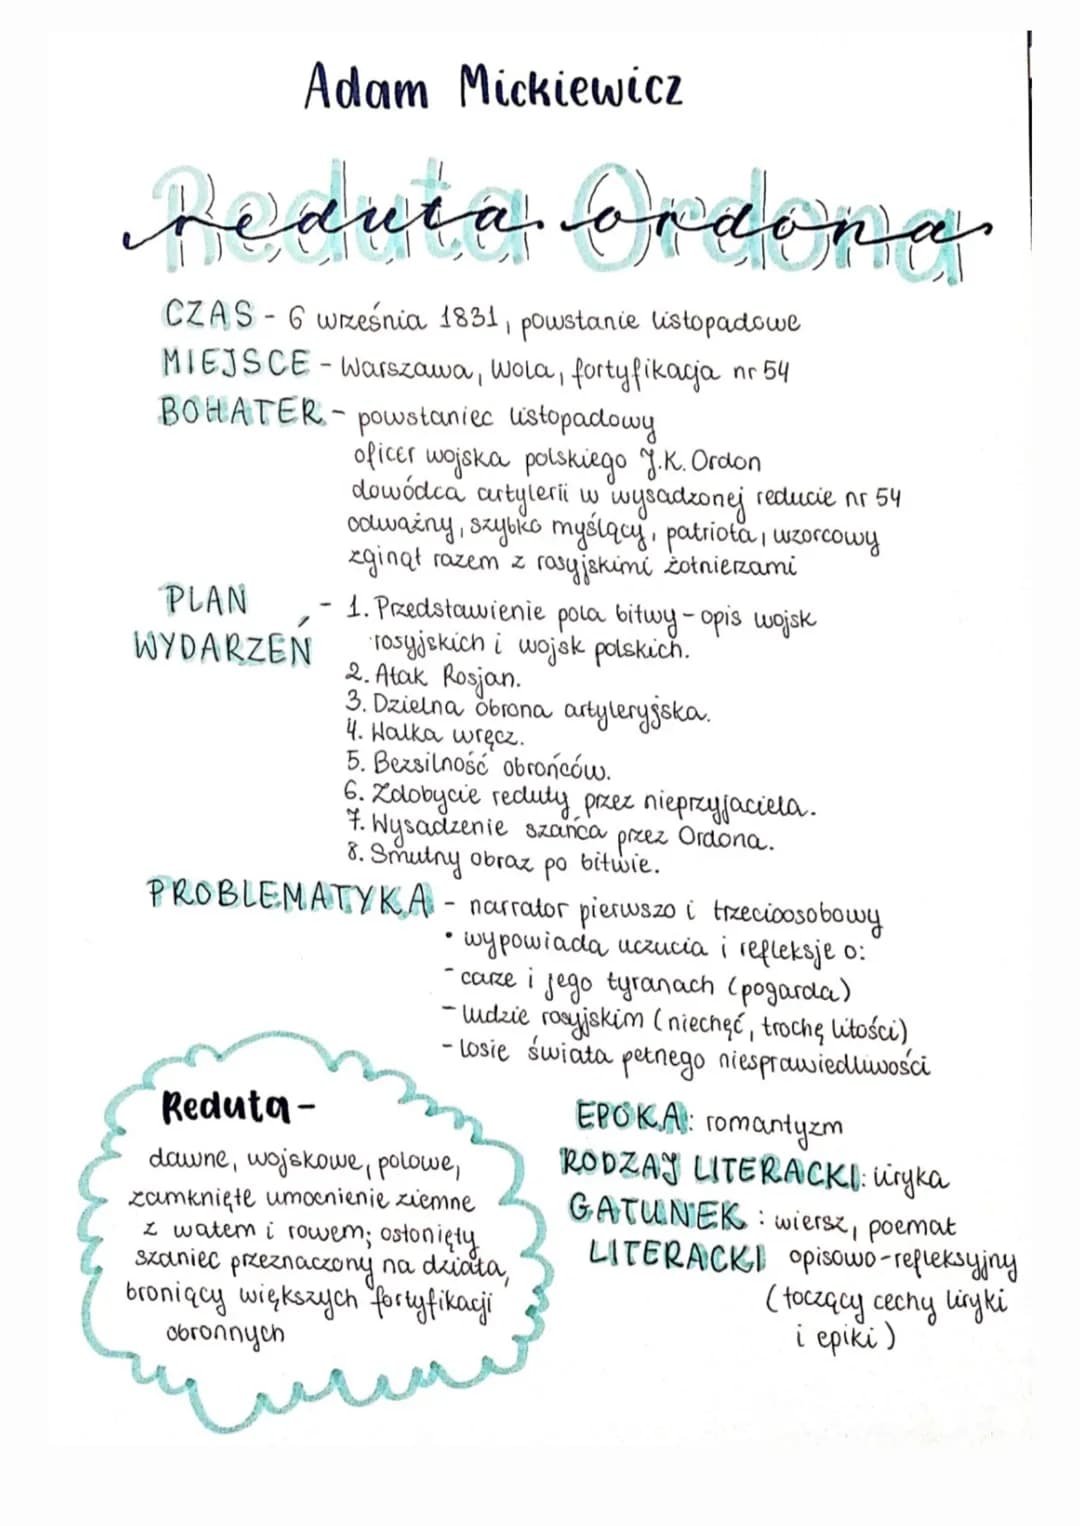 Adam Mickiewicz
Reduta Ordona
reduta ordona
CZAS - 6 września 1831, powstanie listopadowe
MIEJSCE - Warszawa, Wola, fortyfikacja nr 54
BOHATER - powstaniec listopadowy
oficer wojska polskiego J.K. Ordon
dowódca artylerii w wysadzonej reducie nr 54
odważny, szybko myślący, patriota, wzorcowy
zginął razem z rosyjskimi żołnierzami
PLAN WYDARZEŃ - 1. Przedstawienie pola bitwy - opis wojsk
rosyjskich i wojsk polskich.
2. Atak Rosjan.
3. Dzielna obrona artyleryjska.
4. Walka wręcz.
5. Bezsilność obrońców.
6. Zdobycie reduty przez nieprzyjaciela.
7. Wysadzenie szańca przez Ordona.
8. Smutny obraz po bitwie.
PROBLEMATYKA - narrator pierwszo i trzecioosobowy
• wypowiada uczucia i refleksje o:
- carze i jego tyranach (pogarda)
- ludzie rosyjskim (niechęć, trochę litości)
- losie świata pełnego niesprawiedliwości
Reduta -
dawne, wojskowe, polowe,
zamknięte umocnienie ziemne
z wałem i rowem; osłonięty
szaniec przeznaczony na działa,
broniący większych fortyfikacji
obronnych
EPOKA: romantyzm
RODZAJ LITERACKI: liryka
GATUNEK : wiersz, poemat
LITERACKI opisowo-refleksyjny
(łączący cechy liryki
i epiki)